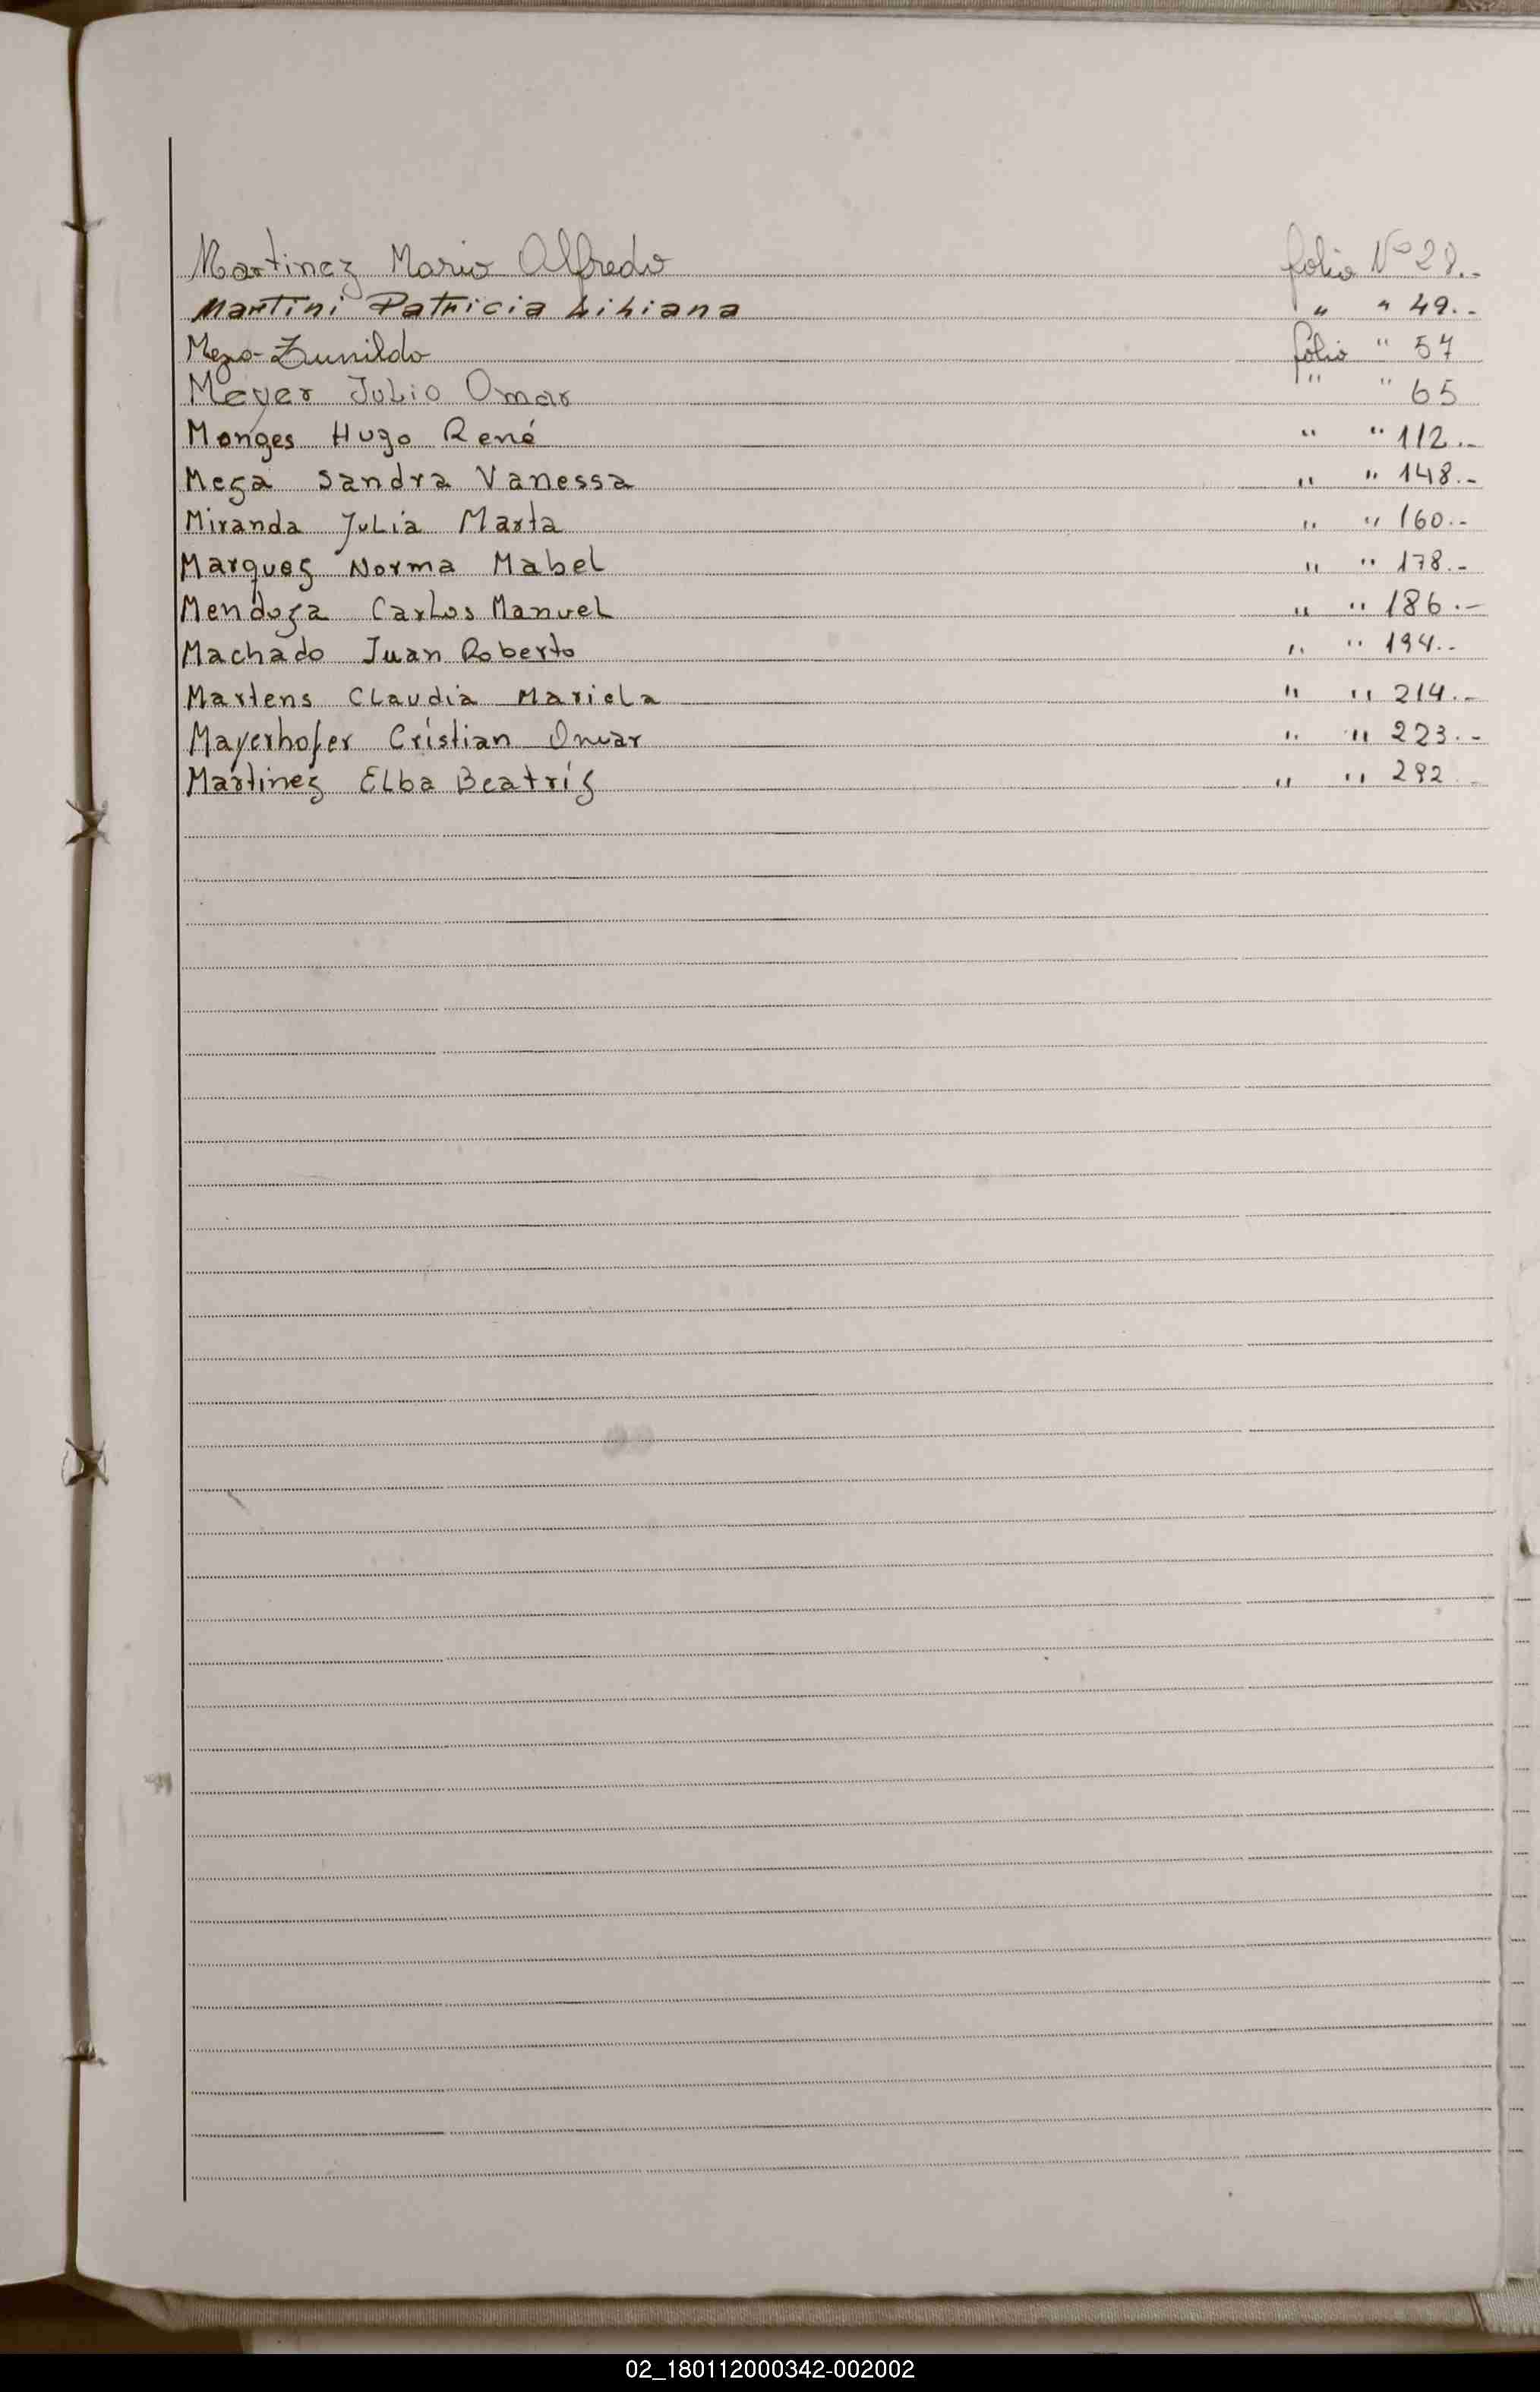 Martinez Mario Alfredo folio Nº 28.-
Martini Patricia Liliana " " 49.-
Meza Zunildo folio " 57
Meyer Julio Omar " " 65
Monges Hugo René " " 112.-
Meza Sandra Vanessa " " 148.-
Miranda Julia Marta " " 160.-
Marquez Norma Mabel " " 178.-
Mendoza Carlos Manuel " " 186.-
Machado Juan Roberto " " 194.-
Martens Claudia Mariela " " 214.-
Mayerhofer Cristian Omar " " 223.-
Martinez Elba Beatríz " " 292.-
02_180112000342-002002